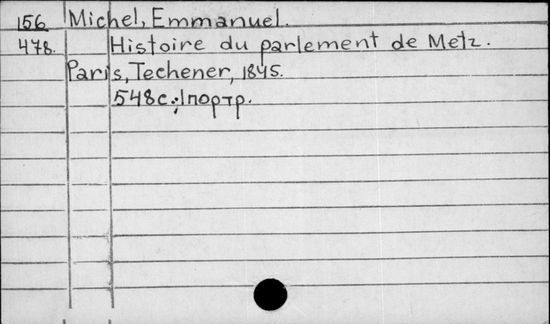 156 Michel, Emmanuel.
478. Histoire du parlement de Metz.
Paris, Techener, 1845.
548с.; 1 портр.